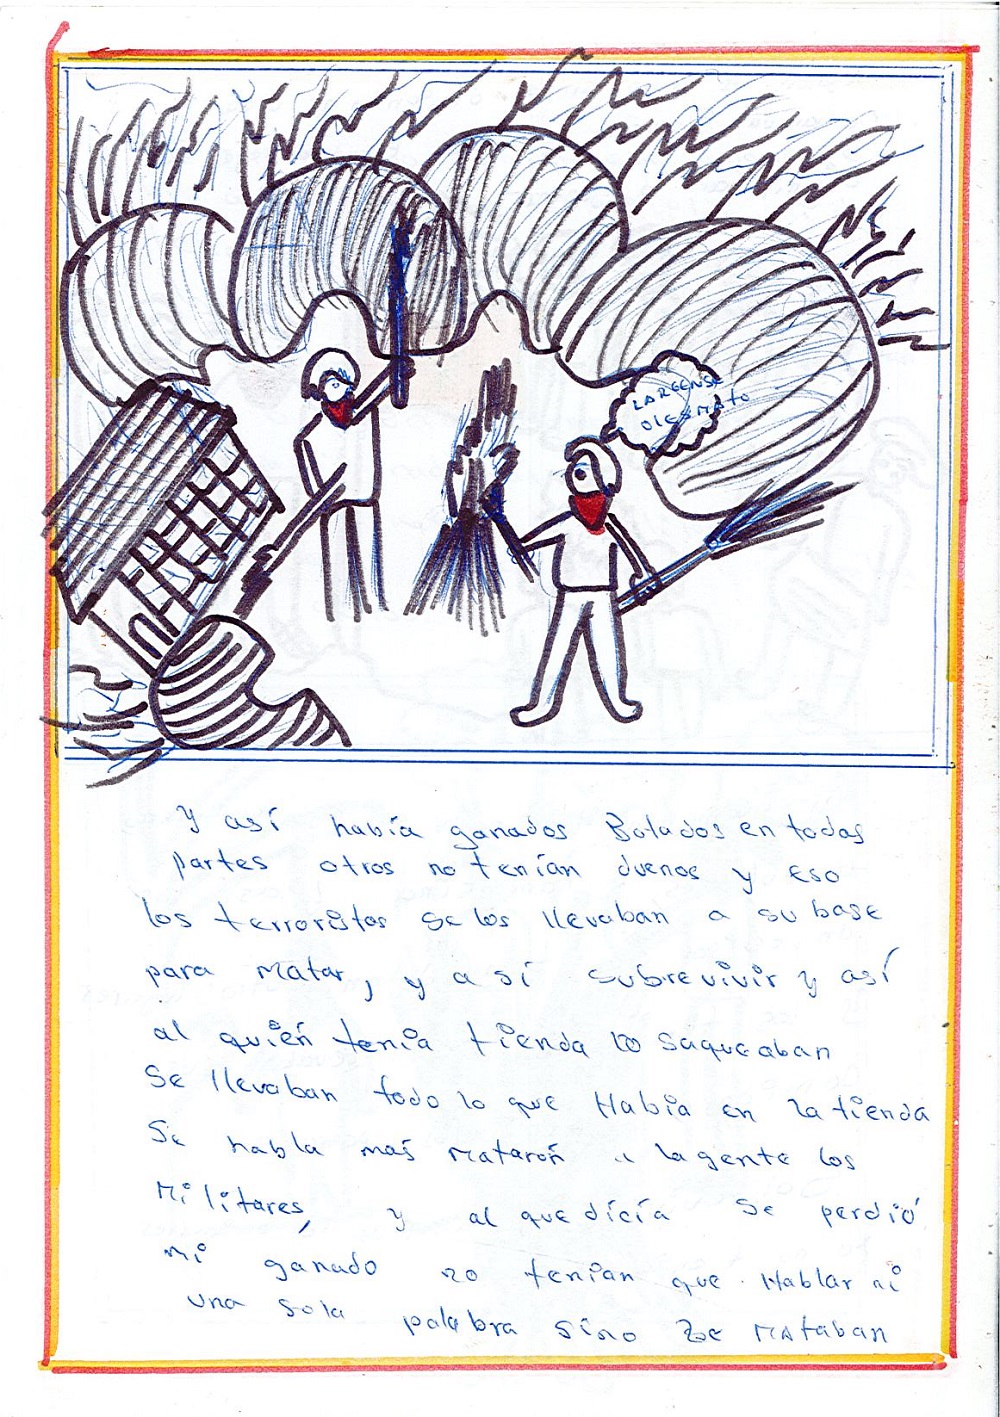 LARGENSE
O LES MATO
Y así había ganados Botados en todas
partes otros no tenían duenos y eso
los terroristas se los llevaban a su base
para matar, y a sí subrevivir y así
al quién tenia tienda lo saqueaban
Se llevaban todo lo que Había en la tienda
Se habla mas mataron a la gente los
Militares, y al que dicía se perdió
mi ganado no tenian que Hablar ni
una sola palabra sino le mataban